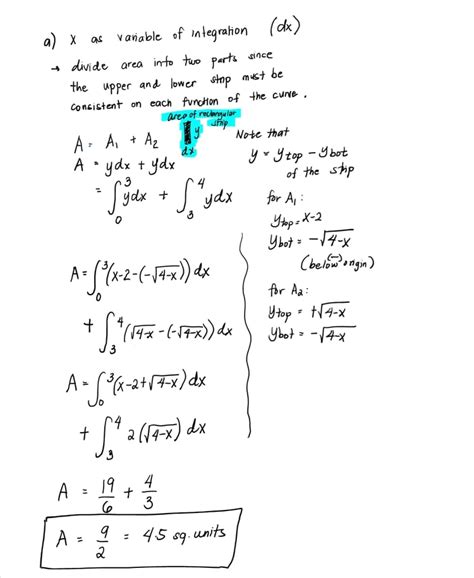 a) x as variable of integration (dx)
→ divide area into two parts since
the upper and lower strip must be
consistent on each function of the curve.
area of rectangular strip
y
dx
A = A₁ + A₂
A = ydx + ydx
= ∫₀³ ydx + ∫₃⁴ ydx
Note that
y = ytop - ybot
of the strip
for A₁:
ytop = x-2
ybot = -√4-x
(below origin)
(-)
for A₂:
ytop = +√4-x
ybot = -√4-x
A = ∫₀³ (x-2-(-√4-x)) dx
+ ∫₃⁴ (√4-x -(-√4-x)) dx
A = ∫₀³ (x-2+√4-x) dx
+ ∫₃⁴ 2(√4-x) dx
A = 19/6 + 4/3
A = 9/2 = 4.5 sq. units